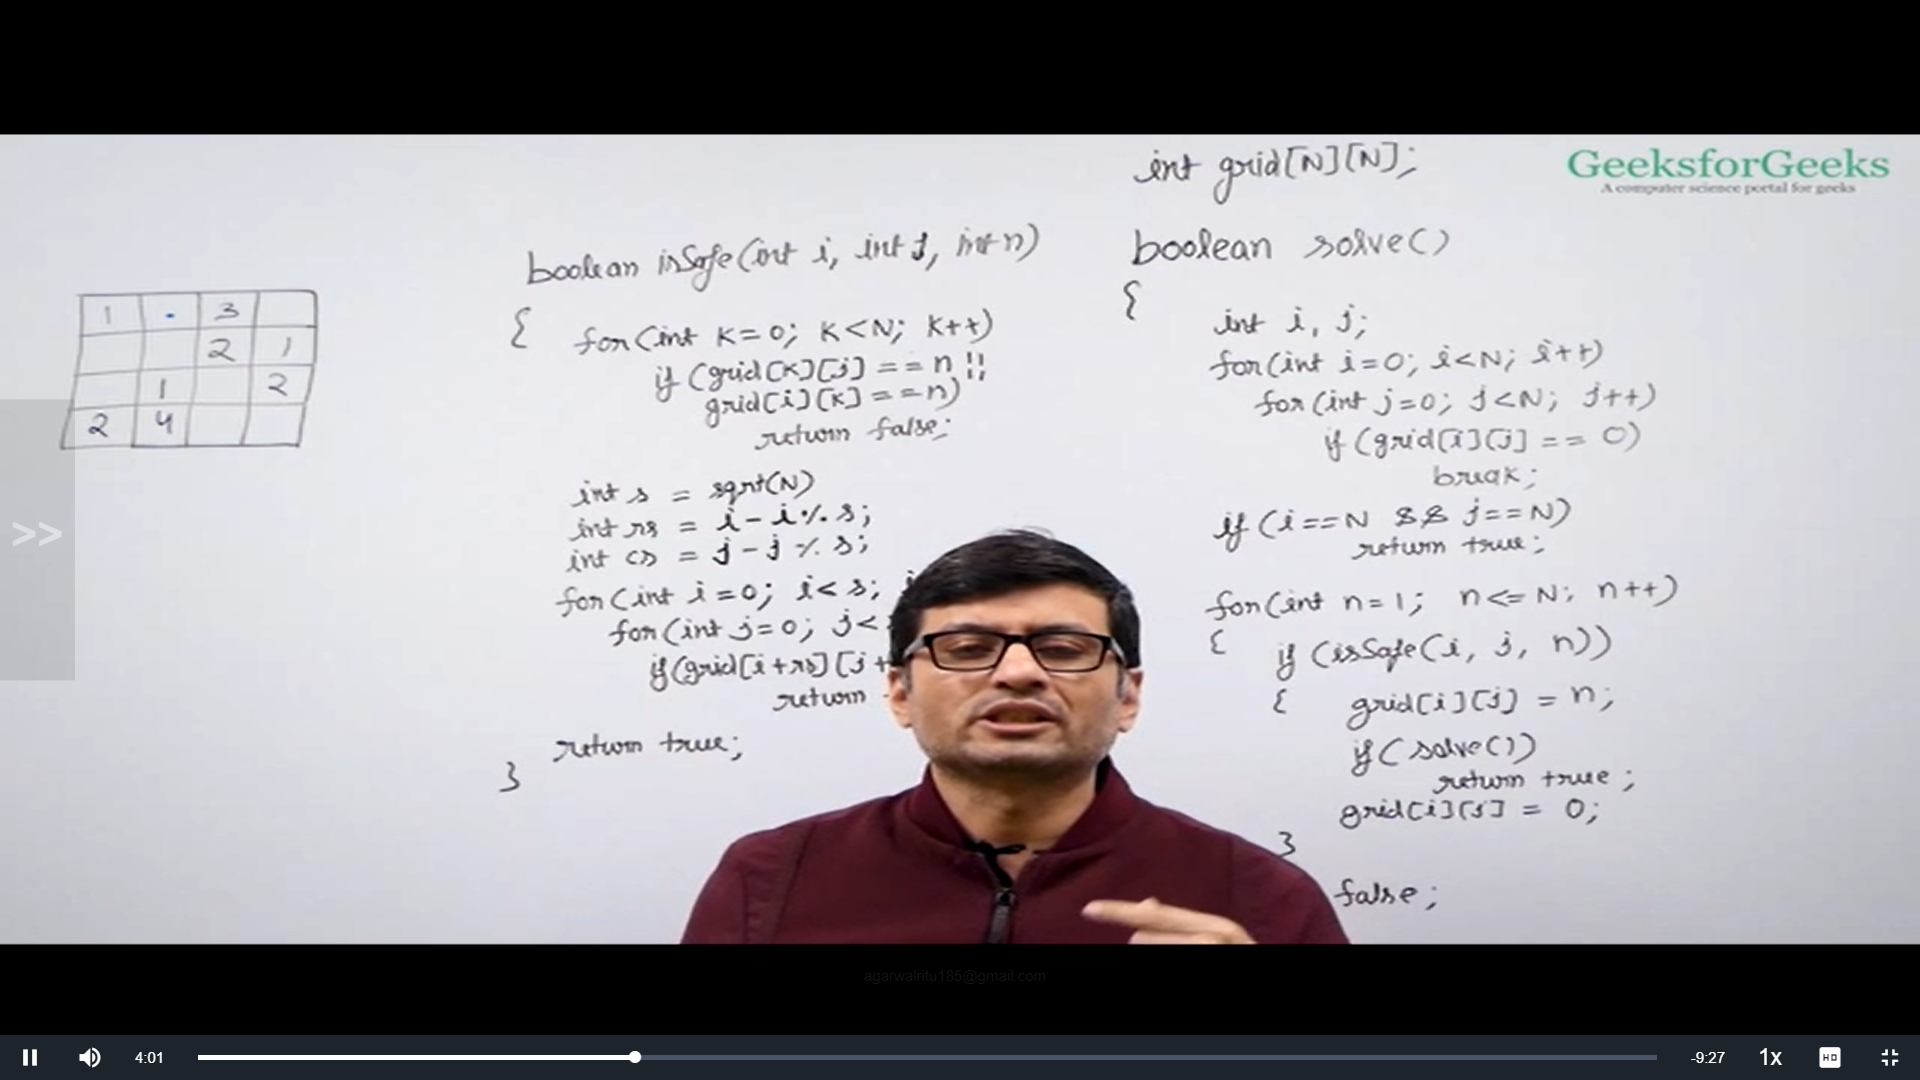 int grid[N][N];
GeeksforGeeks
A computer science portal for geeks
boolean isSafe(int i, int j, int n)
{
for(int K=0; K<N; K++)
if (grid[K][j] == n ||
grid[i][K] == n)
return false;
int s = sqrt(N)
int rs = i - i % s;
int cs = j - j % s;
for(int i=0; i<s; i
for(int j=0; j<
if(grid[i+rs][j+
return
return true;
}
boolean solve()
{
int i, j;
for(int i=0; i<N; i++)
for(int j=0; j<N; j++)
if (grid[i][j] == 0)
break;
if (i==N && j==N)
return true;
for(int n=1; n<=N; n++)
{ if (isSafe(i, j, n))
{ grid[i][j] = n;
if (solve())
return true;
grid[i][j] = 0;
}
false;
1 3
2 1
1 2
2 4
>>
agarwalritu185@gmail.com
4:01
-9:27
1x
HD